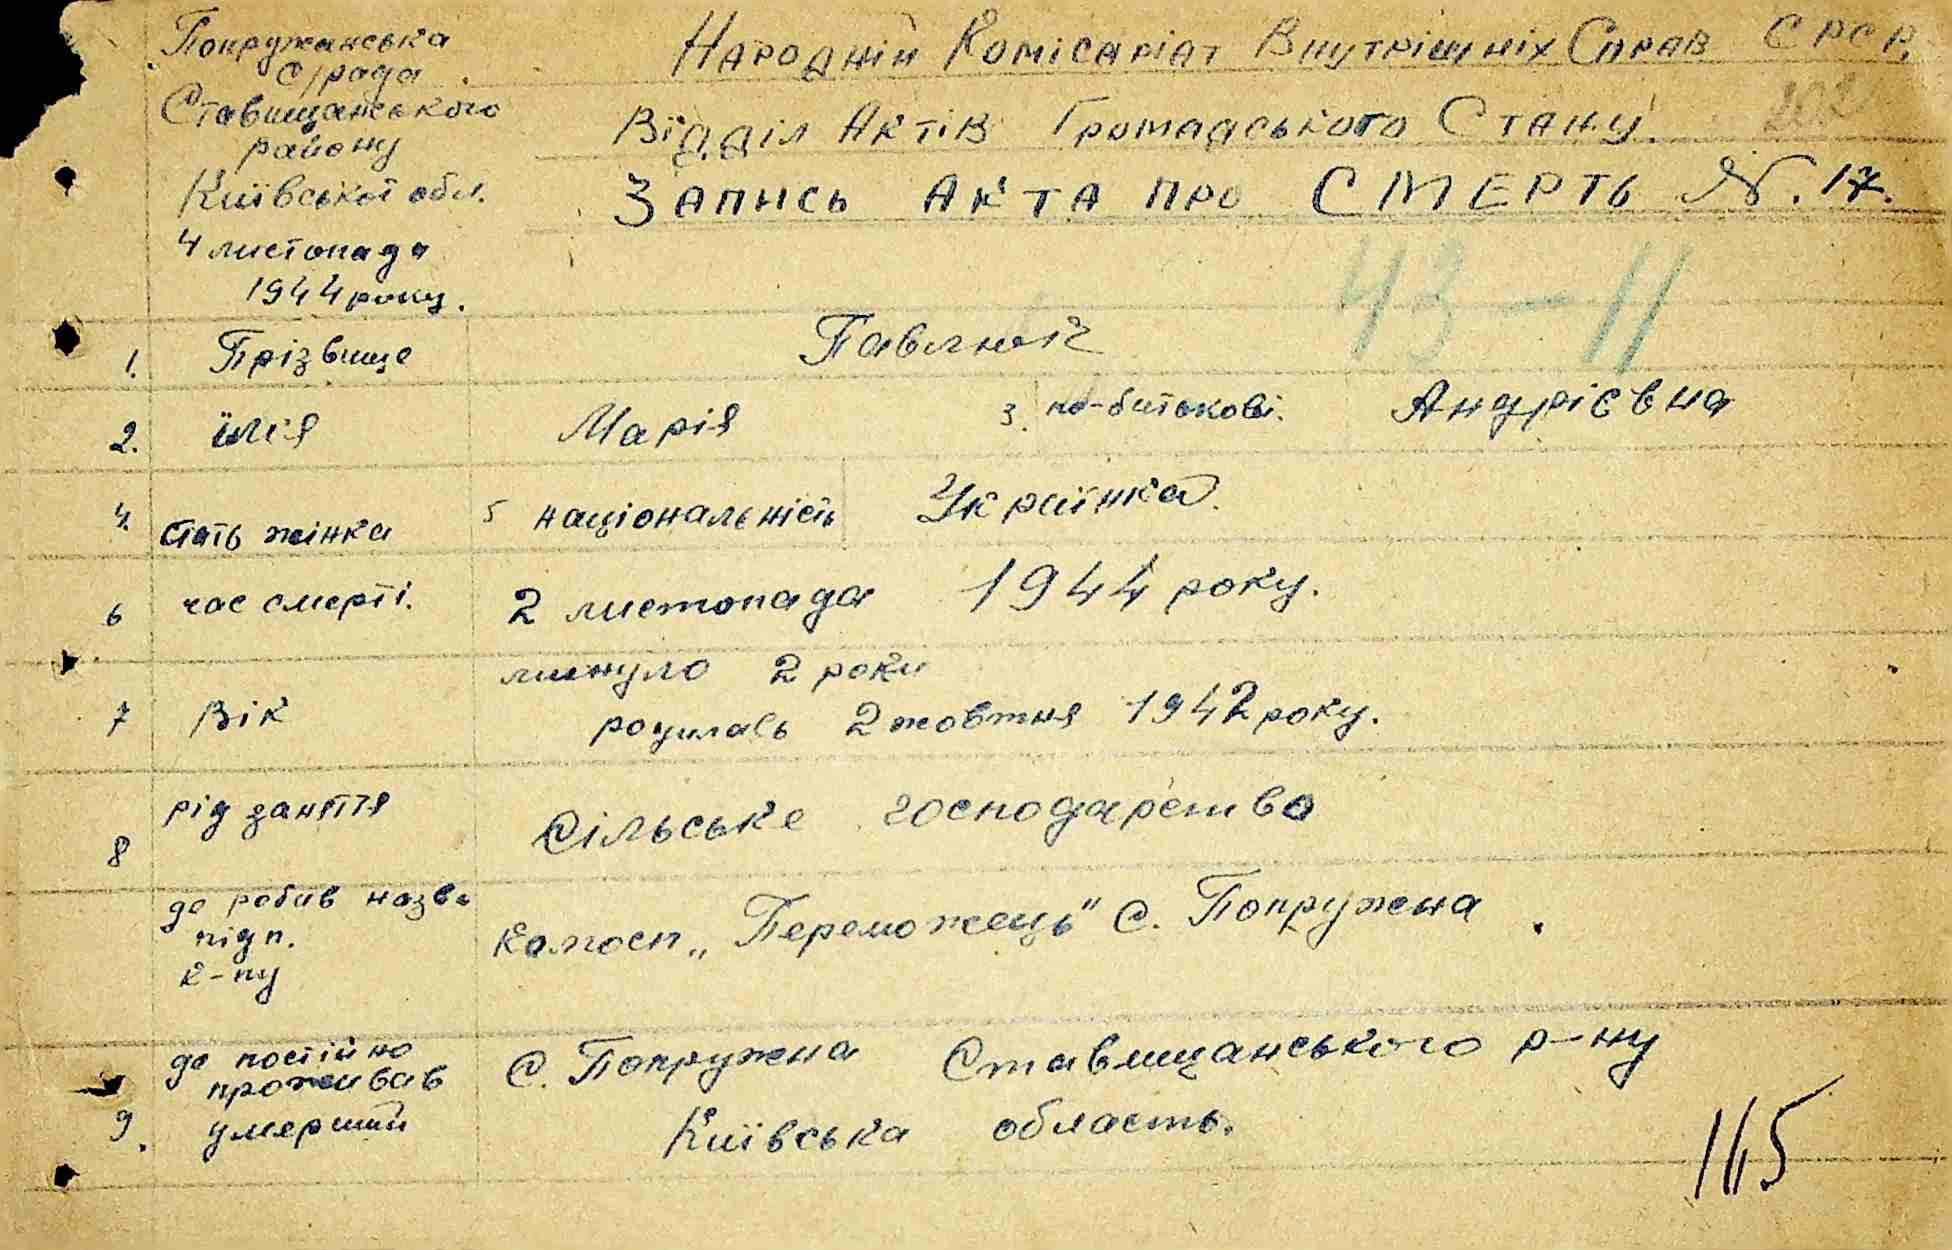 Попружанська
с/рада
Ставищанського
району
Київської обл.
4 листопада
1944 року.
Народній Комісаріат Внутрішніх Справ СРСР.
Відділ Актів Громадського Стану.
Запись Акта про СМЕРТЬ №. 17.
43-11
1. Прізвище Павлюк
2. імя Марія 3. по-батькові. Андрієвна
4. стать жінка 5 національність Українка.
6 час смерті. 2 листопада 1944 року.
7 Вік минуло 2 роки
родилась 2 жовтня 1942 року.
8 рід заняття Сільське господарство
де робив назва
підп.
к-пу
колгосп „Переможець" с. Попружена.
9. де постійно
проживав
умерший
с. Попружна Ставищанського р-ну
Київська область.
165